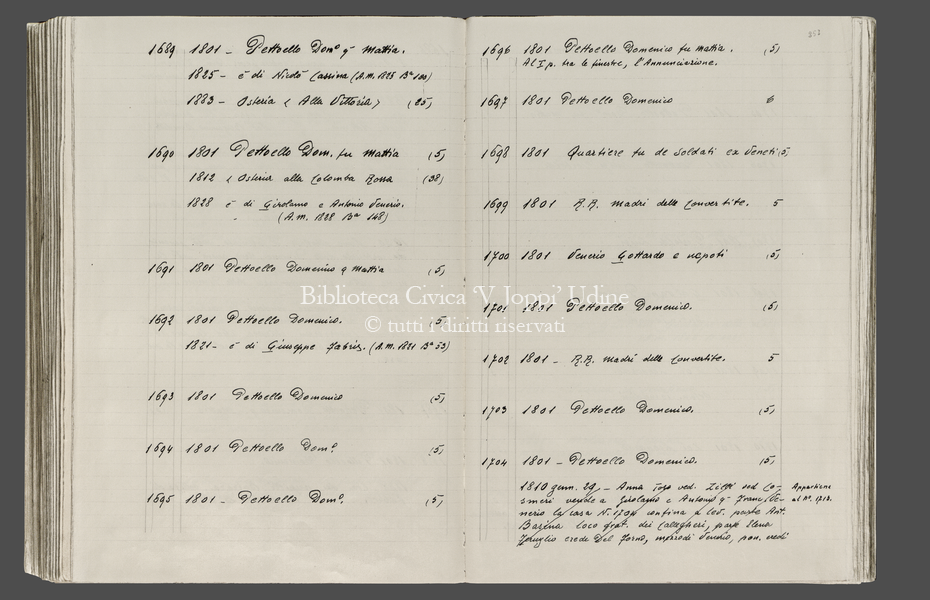 1689 1801 - Pettoello Dom.º q Mattia.
1825 - è di Nicolò Cassina (A.m. 1825 Bª 100)
1883 - Osteria « Alla Vittoria » (25)
1690 1801 Pettoello Dom. fu Mattia (5)
1812 « Osteria alla Colomba Rossa (38)
1828 è di Girolamo e Antonio Venerio.
(A.m. 1828 Bª 148)
1691 1801 Pettoello Domenico q Mattia (5)
1692 1801 Pettoello Domenico. (5)
1821 - è di Giuseppe Fabris. (A.m. 1821 Bª 53)
1693 1801 Pettoello Domenico (5)
1694 1801 Pettoello Dom.º (5)
1695 1801 - Pettoello Dom.º. (5)
252
1696 1801 Pettoello Domenico fu Mattia. (5)
Al I p. tra le finestre, l'Annunciazione.
1697 1801 Pettoello Domenico 6
1698 1801 Quartiere fu de soldati ex Veneti (5)
1699 1801 R.R. Madri delle Convertite. 5
1700 1801 Venerio Gottardo e nepoti (5)
1701 1801 Pettoello Domenico. (5)
1702 1801 - R.R. Madri delle Convertite. 5
1703 1801 Pettoello Domenico. (5)
1704 1801 - Pettoello Domenico. (5)
1810 genn. 29 - Anna ved. ved. Co-
smeri vende a Girolamo e Antonio q Franc. Ve-
nerio la casa N. 1704 confina a lev. parte Ant.
loco dei Calegheri, parte Elena
erede Del Forno, Venerio, pon. eredi
Appartiene
al Nº. 1713.
Biblioteca Civica 'V. Joppi' Udine
© tutti i diritti riservati